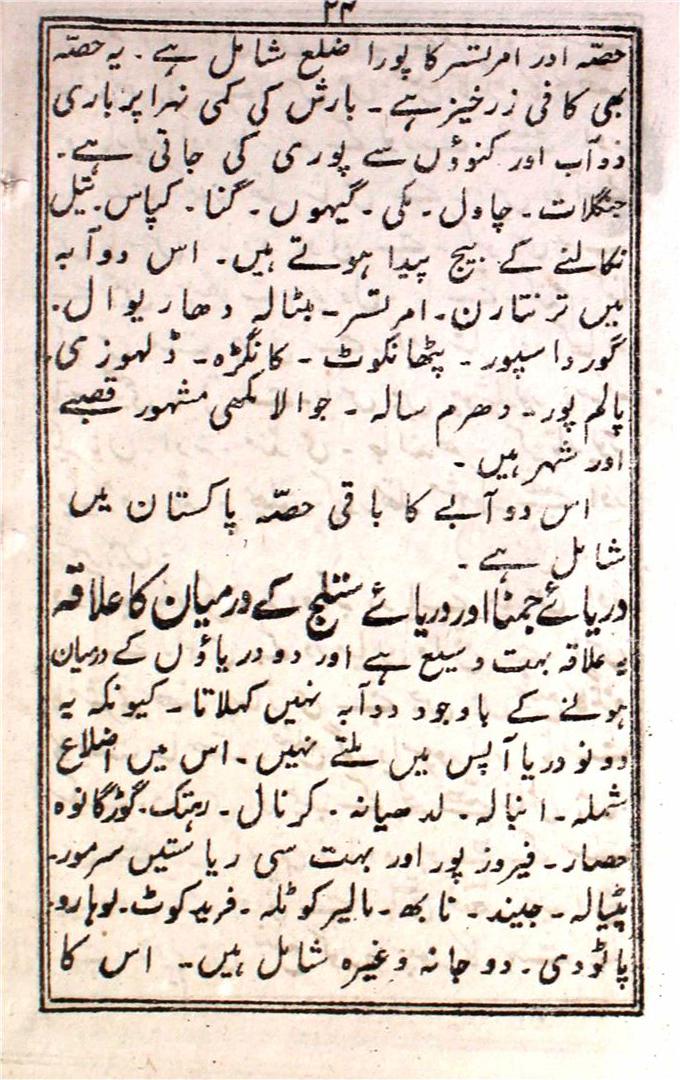 ۲۴
حصّہ اور امرتسر کا پورا ضلع شامل ہے۔ یہ حصّہ
بھی کافی زرخیز ہے۔ بارش کی کمی نہر اپر باری
دوآب اور کنوؤں سے پوری کی جاتی ہے۔
جنگلات۔ چاول۔ مکی۔ گیہوں۔ گنا۔ کپاس۔ تیل
نکالنے کے بیج پیدا ہوتے ہیں۔ اس دوآبہ
میں ترنتارن۔ امرتسر۔ بٹالہ دھاریوال۔
گورداسپور۔ پٹھانکوٹ۔ کانگڑہ۔ ڈلہوزی۔
پالم پور۔ دھرم سالہ۔ جوالا مکھی مشہور قصبے
اور شہر ہیں۔
اس دوآبے کا باقی حصّہ پاکستان میں
شامل ہے۔
دریائے جمنا اور دریائے ستلج کے درمیان کا علاقہ
یہ علاقہ بہت وسیع ہے اور دو دریاؤں کے درمیان
ہونے کے باوجود دوآبہ نہیں کہلاتا۔ کیونکہ یہ
دونو دریا آپس میں ملتے نہیں۔ اس میں اضلاع
شملہ۔ انبالہ۔ لدھیانہ۔ کرنال۔ رہتک۔ گوڑگانوہ
حصار۔ فیروز پور اور بہت سی ریاستیں سرمور۔
پٹیالہ۔ جیند۔ نابھہ۔ مالیر کوٹلہ۔ فریدکوٹ۔ لوہارو۔
پاٹودی۔ دوجانہ وغیرہ شامل ہیں۔ اس کا